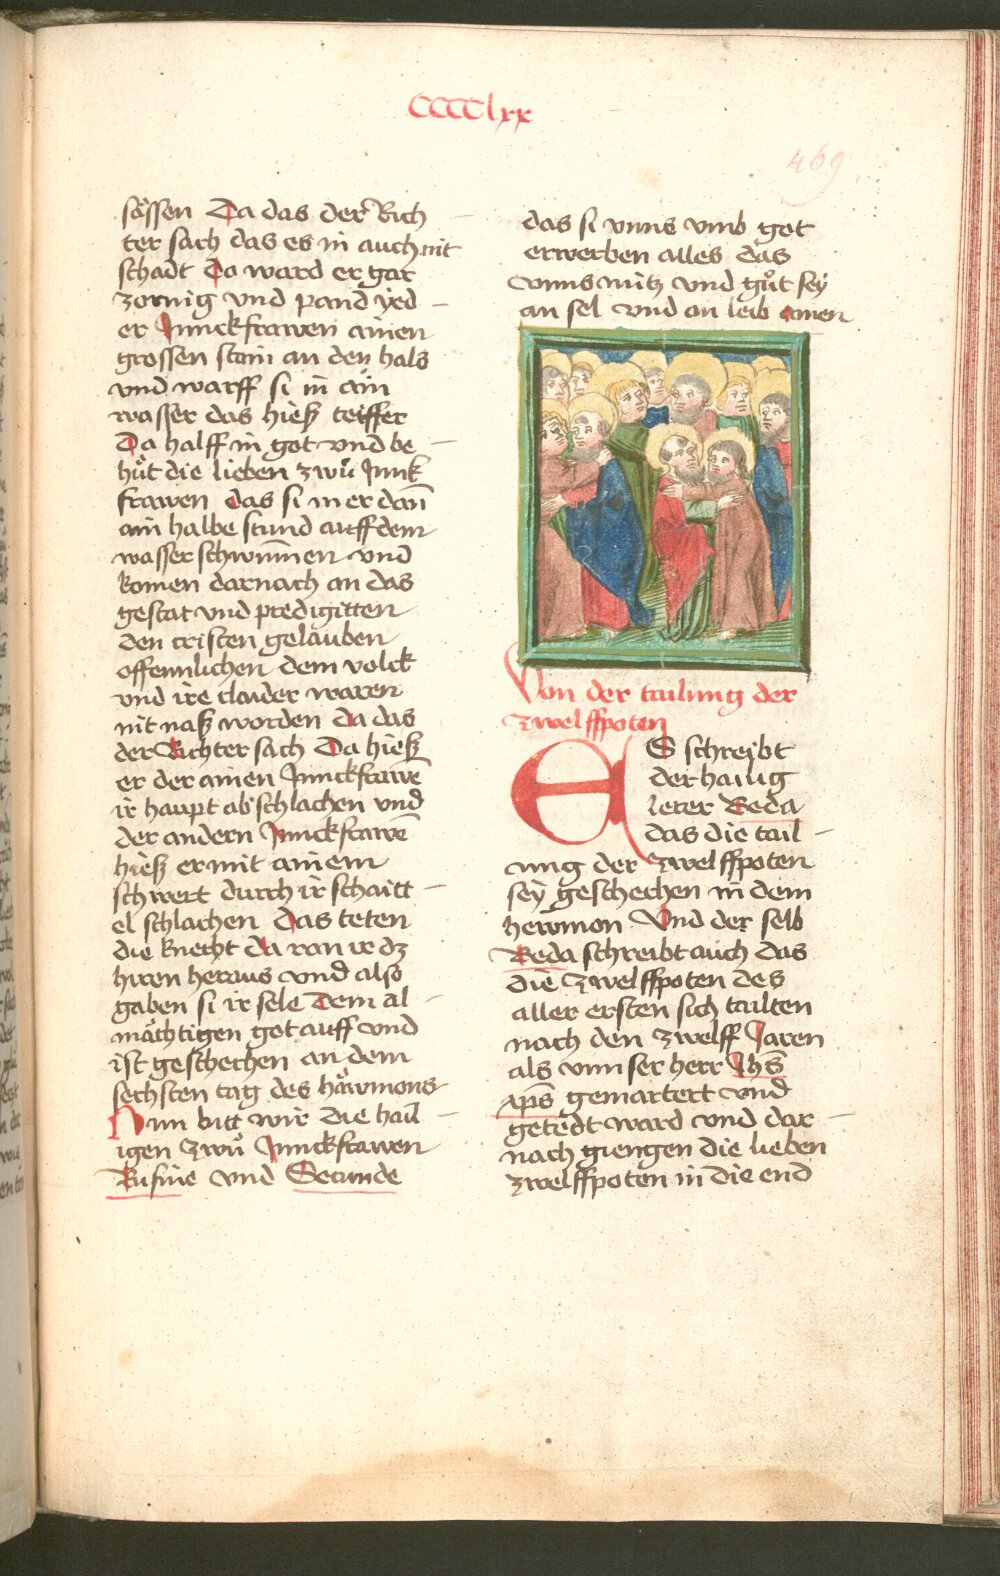 CCCClxx
469
sässen Da das der Rich
ter sach das es in auch nit
schadt Da ward er gar
zornig vnd pand yed
er Junckfrawen ainen
grossen stain an den hals
vnd warff si in ain
wasser das hieß teiffer
Da halff in got vnd be
hüt die lieben zwů Junk
frawen das si mer dañ
ain halbe stund auff dem
wasser schwim̄en vnd
komen darnach an das
gestat vnd predigitten
den cristen gelauben
offennlichen dem volck
vnd ire claider waren
nit naß worden da das
der Richter sach Da hieß
er der ainen Junckfrawē
ir haupt abschlachen vnd
der andern Junckfrawē
hieß er mit ainem
schwert durch ir schaitt
el schlachen Das teten
die knecht da ran ir dz
hiren heraus vnd also
gaben si ir sele Dem al
mächtigen got auff vnd
ist geschechen an dem
sechsten tag des häwmons
Nun bitt wir die hail
igen zwů Junckfrawen
Rufine vnd Secunde
das si vnns vmb got
erwerben alles das
vnns nütz vnd gůt sey
an sel vnd an leib amen
Von der tailung der
zwelffpoten
ES schreibt
der hailig
lerer Beda
das die tail
ung der zwelffpoten
sey geschechen in dem
hewmon Vnd der selb
Beda schreibt auch das
die zwelffpoten des
aller ersten sich tailten
nach den zwelff Jaren
als vnnser herr Jhs̄
xp̄s gemartert vnd
getedt ward vnd dar
nach giengen die lieben
zwelffpoten in die end